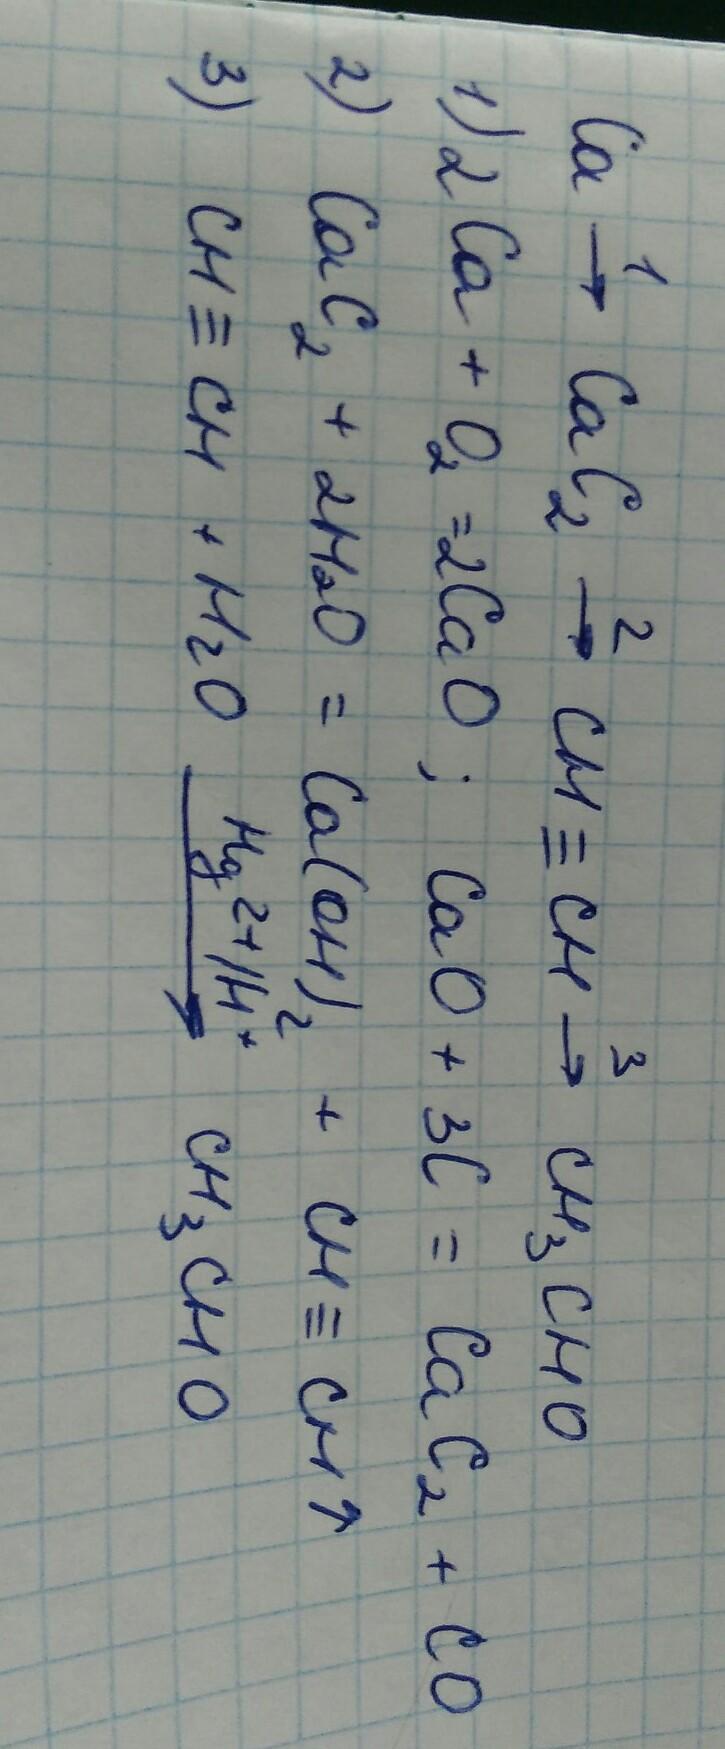 Ca →¹ CaC₂ →² CH≡CH →³ CH₃CHO
1) 2Ca + O₂ = 2CaO; CaO + 3C = CaC₂ + CO
2) CaC₂ + 2H₂O = Ca(OH)₂ + CH≡CH↑
3) CH≡CH + H₂O Hg²⁺/H⁺ → CH₃CHO